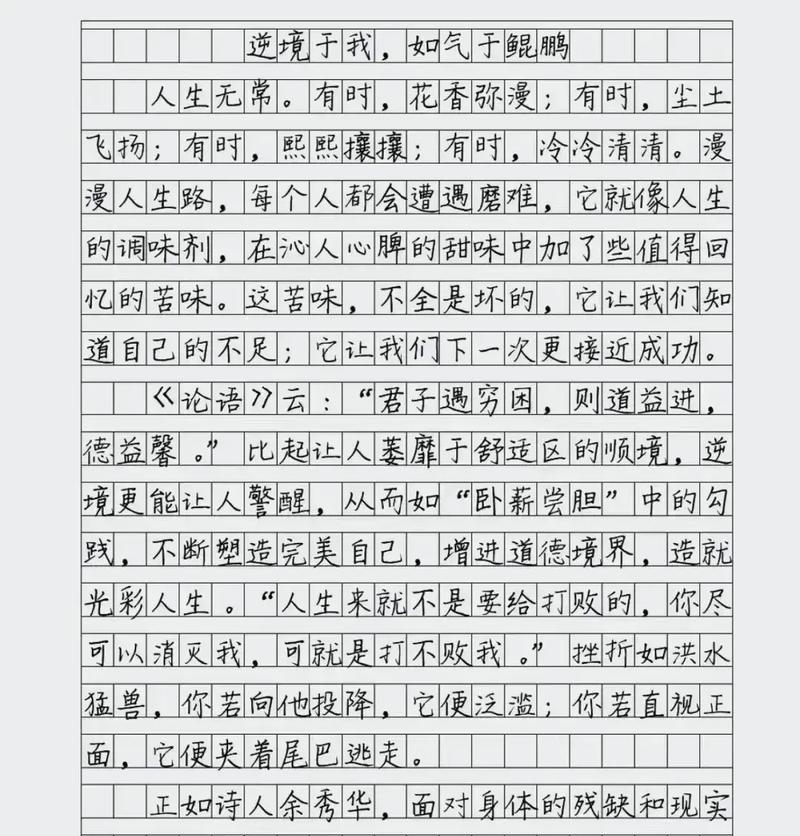 逆境于我，如气于鲲鹏
人生无常。有时，花香弥漫；有时，尘土
飞扬；有时，熙熙攘攘；有时，冷冷清清。漫
漫人生路，每个人都会遭遇磨难，它就像人生
的调味剂，在沁人心脾的甜味中加了些值得回
忆的苦味。这苦味，不全是坏的，它让我们知
道自己的不足；它让我们下一次更接近成功。
《论语》云：“君子遇穷困，则道益进，
德益馨。”比起让人萎靡于舒适区的顺境，逆
境更能让人警醒，从而如“卧薪尝胆”中的勾
践，不断塑造完美自己，增进道德境界，造就
光彩人生。“人生来就不是要给打败的，你尽
可以消灭我，可就是打不败我。”挫折如洪水
猛兽，你若向他投降，它便泛滥；你若直视正
面，它便夹着尾巴逃走。
正如诗人余秀华，面对身体的残缺和现实